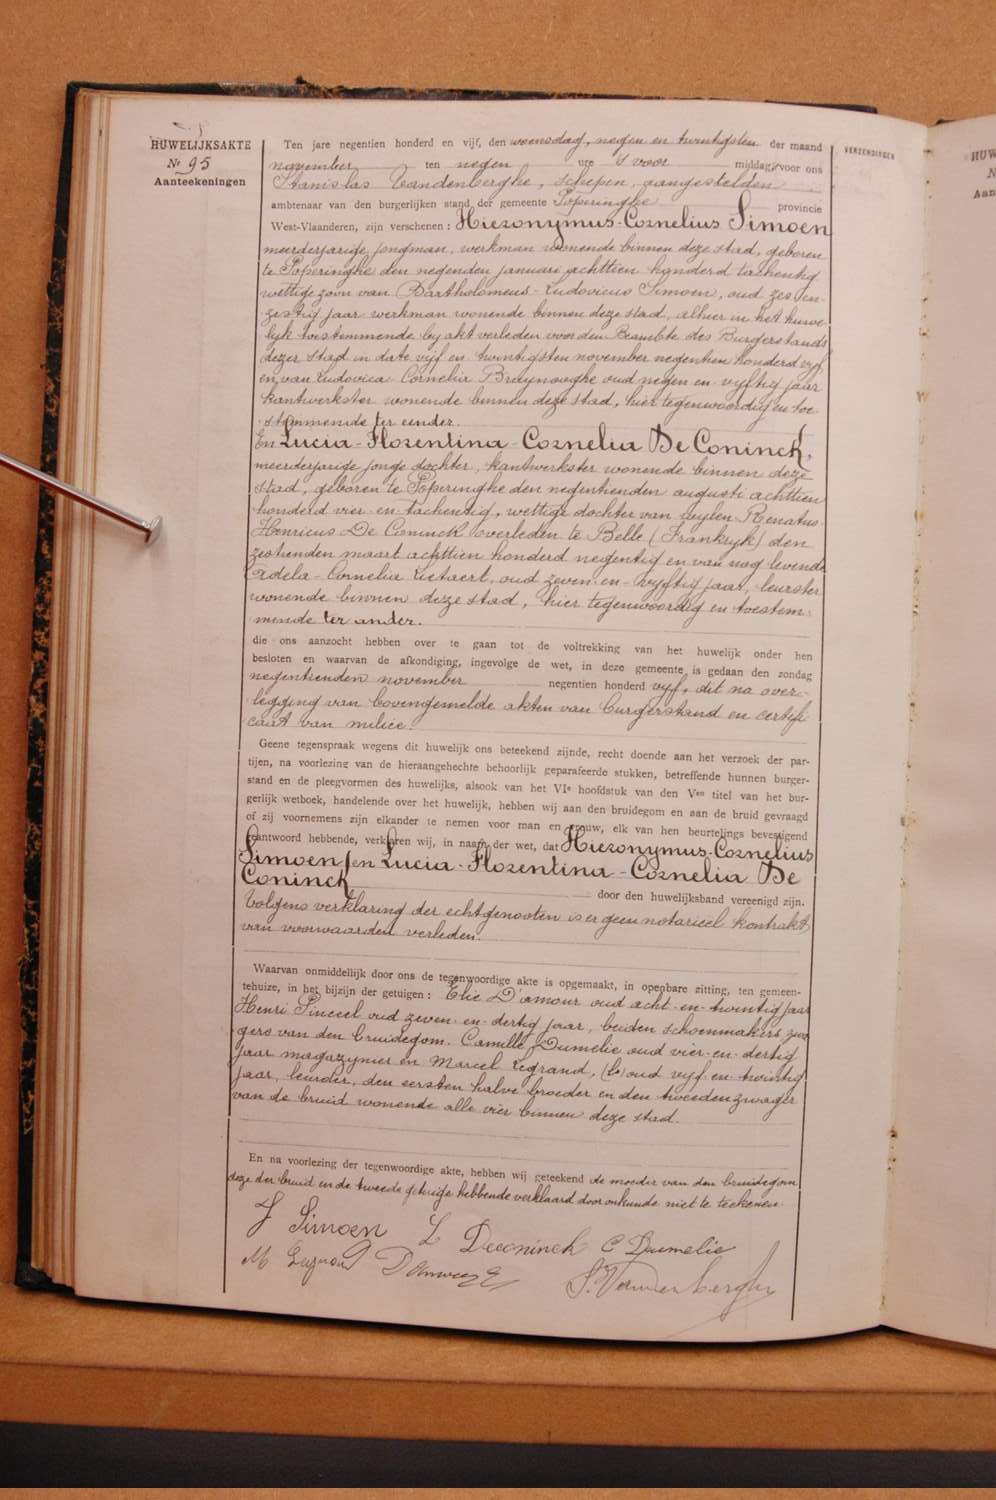 HUWELIJKSAKTE
Nr 95
Aanteekeningen
VERZENDINGEN
Ten jare negentien honderd en vijf, den woensdag, negen en twintigsten der maand
november ten negen ure 's voor middag, voor ons
Stanislas Vandenberghe, schepen, aangestelden
ambtenaar van den burgerlijken stand der gemeente Poperinghe provincie
West-Vlaanderen, zijn verschenen : Hieronymus-Cornelius Simoen
meerderjarige jongman, werkman wonende binnen deze stad, geboren
te Poperinghe den negenden januari achttien honderd tachentig
wettige zoon van Bartholomeus-Ludovicus Simoen, oud zes en
zestig jaar werkman wonende binnen deze stad, alhier in het huwe
lijk toestemmende by akt verleden voor den Beambte des Burgerstands
dezer stad in date vijf en twintigsten november negentien honderd vijf
en van Ludovica Cornelia Bruynooghe oud negen en vyftig jaar
kantwerkster wonende binnen deze stad, hier tegenwoordig en toe
stemmende ter eender.
En Lucia-Florentina-Cornelia De Coninck,
meerderjarige jonge dochter, kantwerkster wonende binnen deze
stad, geboren te Poperinghe den negentienden augusti achttien
honderd vier en tachendig, wettige dochter van wylen Renatus
Henricus De Coninck overleden te Belle (Frankryk) den
zestienden maart achttien honderd negentig en van nog levende
Adela-Cornelia Lietaert, oud zeven-en-vyftig jaar, leurster
wonende binnen deze stad, hier tegenwoordig en toestem-
mende ter ander.
die ons aanzocht hebben over te gaan tot de voltrekking van het huwelijk onder hen
besloten en waarvan de afkondiging, ingevolge de wet, in deze gemeente is gedaan den zondag
negentienden november negentien honderd vyf, dit na over-
legging van bovengemelde akten van burgerstand en certifi
caat van milicie.
Geene tegenspraak wegens dit huwelijk ons beteekend zijnde, recht doende aan het verzoek der par-
tijen, na voorlezing van de hieraangehechte behoorlijk geparafeerde stukken, betreffende hunnen burger-
stand en de pleegvormen des huwelijks, alsook van het VIe hoofdstuk van den Ven titel van het bur-
gerlijk wetboek, handelende over het huwelijk, hebben wij aan den bruidegom en aan de bruid gevraagd
of zij voornemens zijn elkander te nemen voor man en vrouw, elk van hen beurtelings bevestigend
geantwoord hebbende, verklaren wij, in naam der wet, dat Hieronymus-Cornelius
Simoen, en Lucia-Florentina-Cornelia De
Coninck door den huwelijksband vereenigd zijn.
Volgens verklaring der echtgenooten is er geen notarieel kontrakt
van voorwaarden verleden.
Waarvan onmiddellijk door ons de tegenwoordige akte is opgemaakt, in openbare zitting, ten gemeen-
tehuize, in het bijzijn der getuigen : Elie D'amour oud acht-en-twintig jaar
Henri Pinceel oud zeven-en-dertig jaar, beiden schoenmakers zwa
gers van den bruidegom. Camille Dumelie oud vier-en-dertig
jaar magazynier en Marcel Legrand, (b) oud vyf en twintig
jaar, leurder, den eersten halve broeder en den tweeden zwager
van de bruid wonende alle vier binnen deze stad.
En na voorlezing der tegenwoordige akte, hebben wij geteekend de moeder van den bruidegom
deze der bruid en de tweede getuige hebbende verklaard door onkunde niet te teekenen.
J Simoen L Deconinck C Dumelie
M Legrand S. Vandenberghe